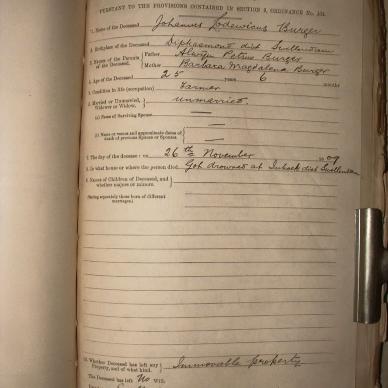 PURSUANT TO THE PROVISIONS CONTAINED IN SECTION 9, ORDINANCE No. 104.
1. Name of the Deceased Johannes Lodewicus Burger
2. Birthplace of the Deceased Diepkasmont dist Swellendam
3. Names of the Parents of the Deceased. Father Petrus Burger
Mother Barbara Magdalena Burger
4. Age of the Deceased 25 years 6 months
5. Condition in life (occupation) Farmer
6. Married or Unmarried, Widower or Widow. unmarried.
(a) Name of Surviving Spouse
(b) Name or names and approximate dates of death of previous Spouse or Spouses.
7. The day of the decease: on 26th November 1909
8. In what house or where the person died Got drowned at dist Swellendam
9. Names of Children of Deceased, and whether majors or minors.
(Stating separately those born of different marriages.)
10. Whether Deceased has left any Property, and of what kind. Immovable property
The Deceased has left No Will.